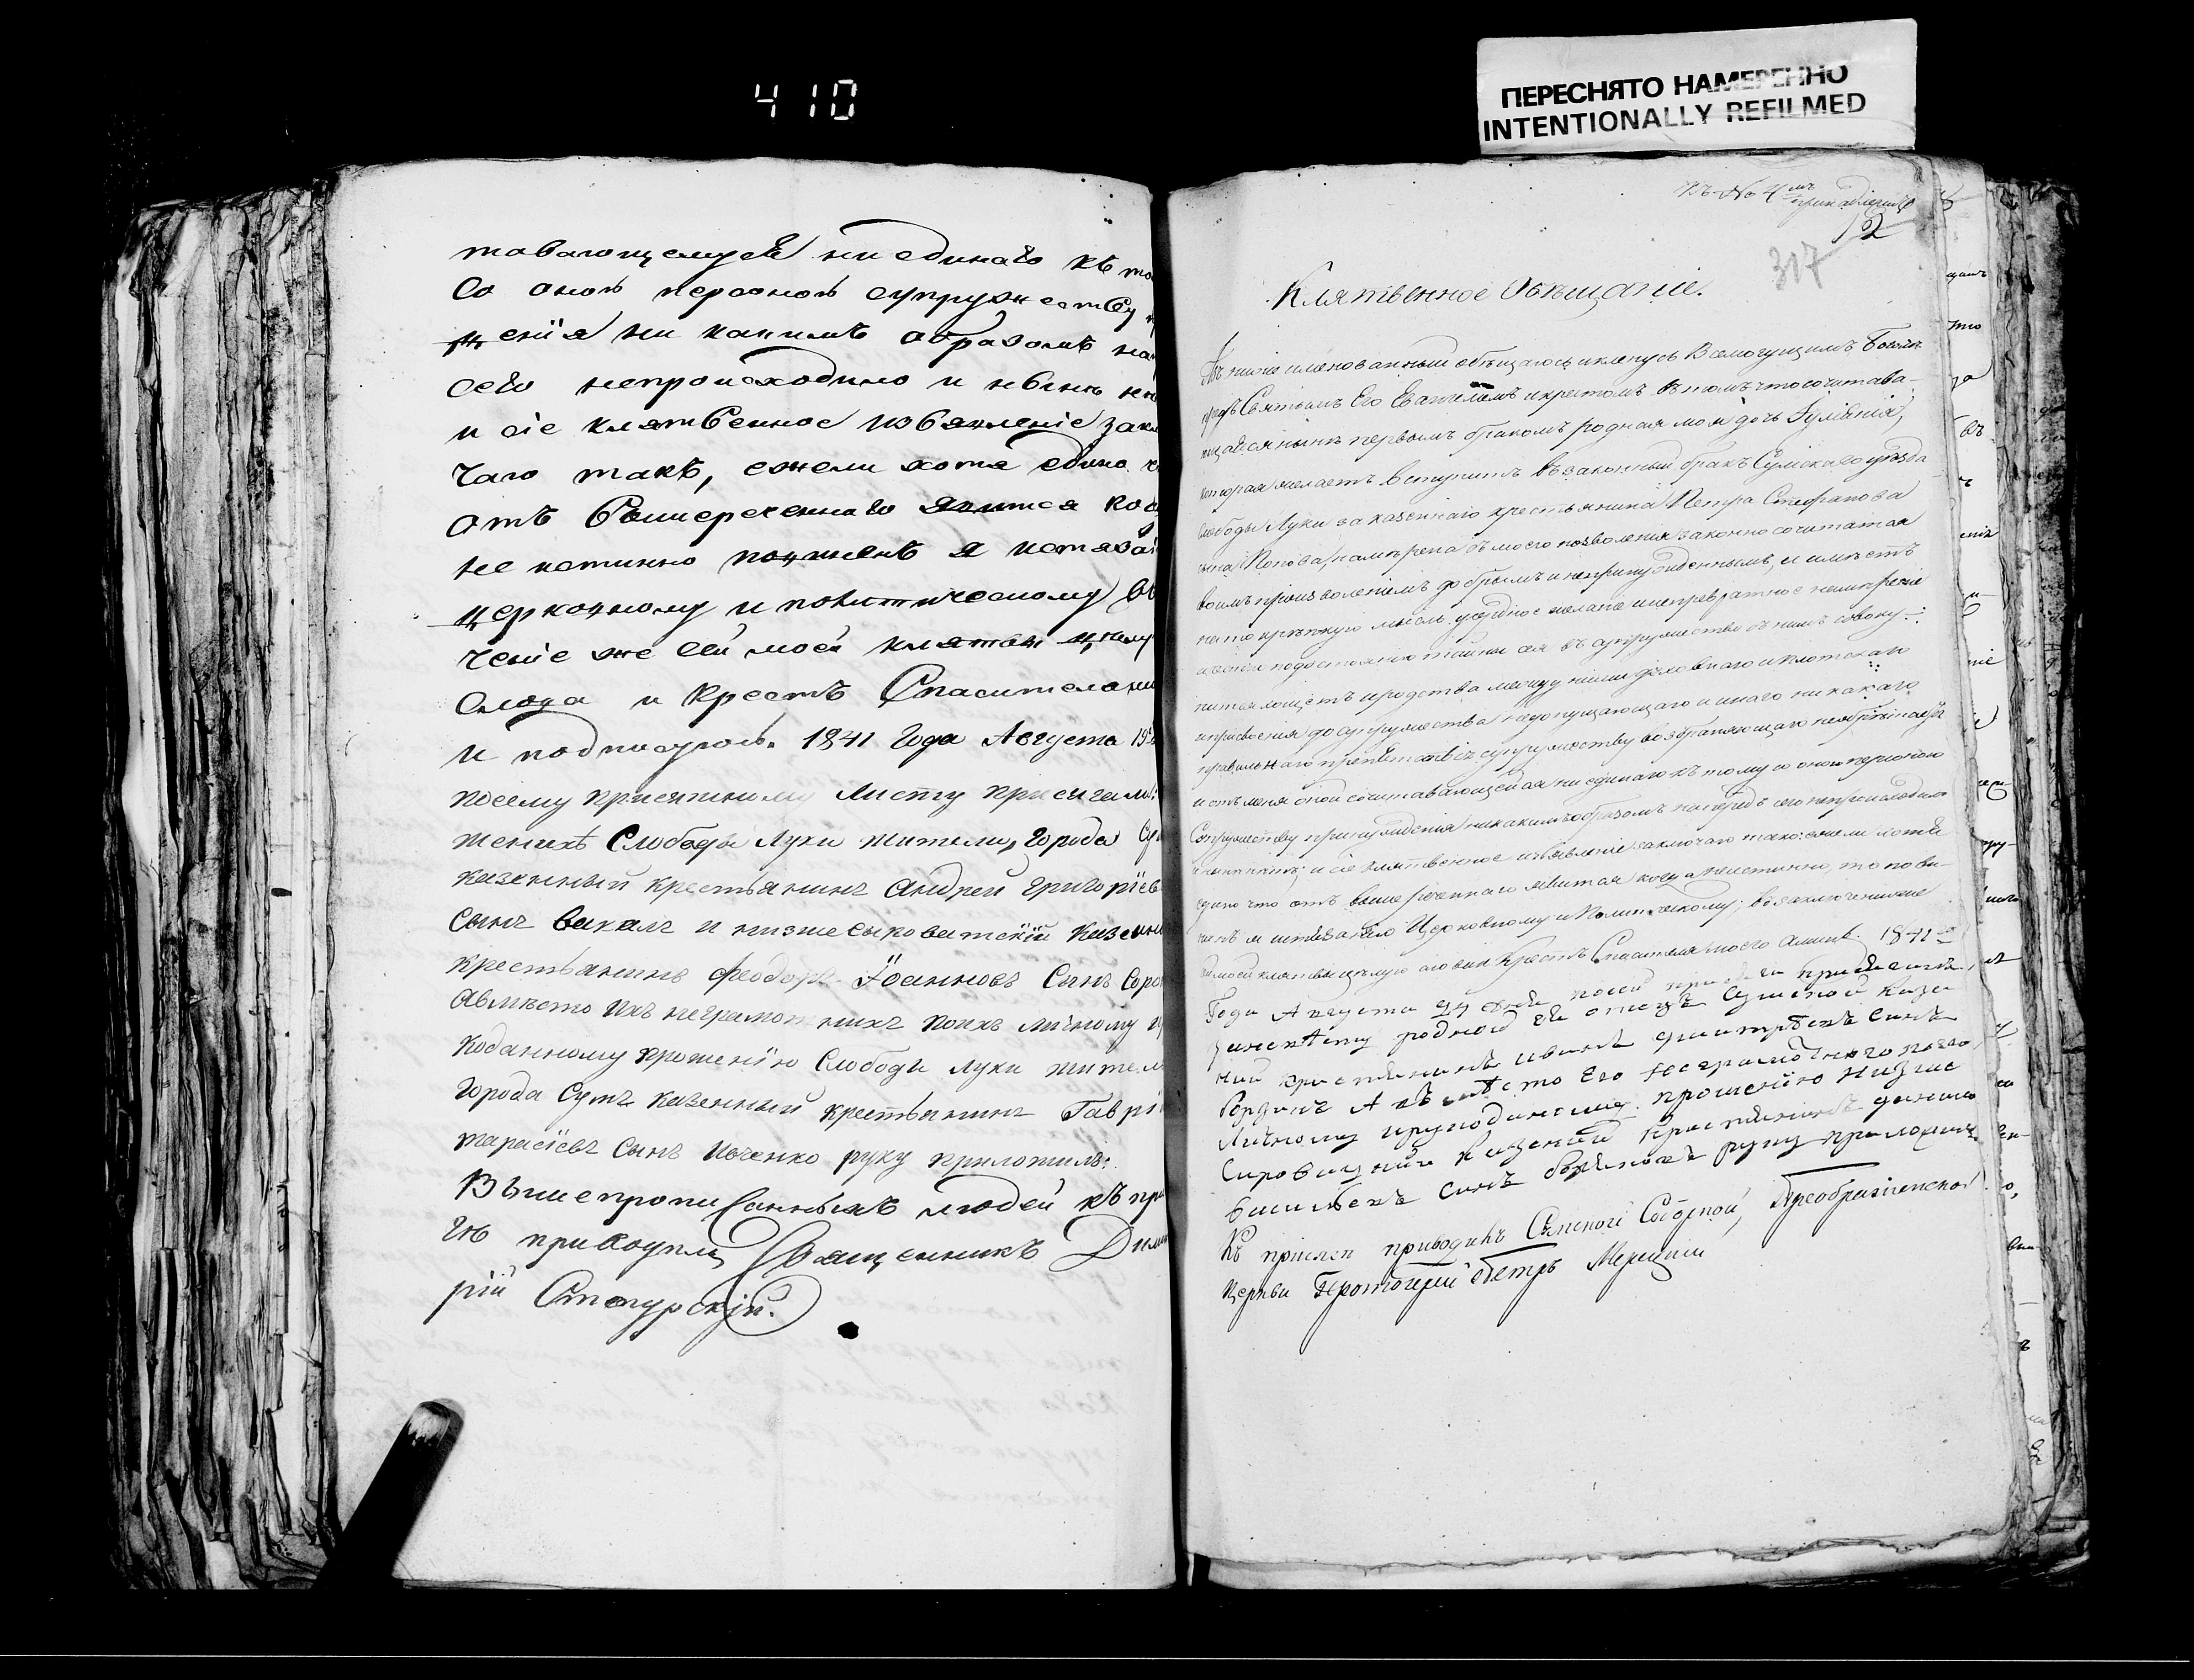 410
ПЕРЕСНЯТО НАМЕРЕННО
INTENTIONALLY REFILMED
тавающемуся ни единаго къ то
со оною персоною супружеству
щенія ни какимъ образомъ на
сего непроисходило и нынѣ не
и сіе клятвенное изъявленіе закл
чаю такъ, ежели хотя едино
отъ вышереченнаго явится ко
не истинно повиненъ я истяза
церковному и политическому
ченіе же сей моей клятвы цѣлую
слова и крестъ Спасителя
и подписуюсь. 1841 Года Августа 19
посему присяжному листу присягали:
женихъ Слободы Луки жители, города Су
казенный крестьянинъ Андрей Григоріевъ
сынъ и низшесыроватскій казенны
крестьянинъ Феодоръ Іоанновъ Сынъ
авмѣсто ихъ неграмотнихъ поихъ личному
коданному прошенію Слободы Луки жител
города Сумъ казенный крестьянинъ Гаврі
тарасіевъ Сынъ Ивченко руку приложилъ:
Вышепрописанныхъ людей къ при
гѣ приводилъ Священникъ Дими
рій
Къ № 4
12
317
Клятвенное Обѣщаніе.
нижеименованный обѣщаюсь и клянусь Всемогущимъ Богомъ
предъ Святымъ Его Евангеліемъ и крестомъ въ томъ что сочитава-
ющаяся нынѣ первымъ бракомъ родная моя дочь Іуліанія,
которая желаетъ вступить въ законный бракъ Сумскаго уѣзда
слободы Луки за казеннаго крестьянина Петра Стефанова
сына Попова, намѣрена съ моего позволенія законно сочитатся
воимъ произволеніемъ добрымъ и непринужденнымъ, и имѣетъ
на то крѣпкую мысль усердное желаніе и непревратное намѣреніе
и подостоянію тайны сея въ супружество съ нимъ совоку-
питися и родства между ними духовнаго и плотскаго
и присвоенія до супружества недопущающаго и инаго никакаго
правильнаго препятствія супружеству возбраняющаго необрѣтается
и отъ меня оной сочитавающейся ни единаго къ тому со оною персоною
Супружеству принужденія никакимъ образомъ напередъ сего непроисходило
и нынѣ нѣтъ; и сіе клятвенное изъявленіе заключаю тако: ежели хотя
едино что отъ вышереченнаго явится когда неистинно, то пови-
ненъ я истязанію Церковному и Политическому; въ заключеніе же
сей моей клятвы цѣлую слова и Крестъ Спасителя моего Аминь. 1841го
Года Августа 24 дня посей присяги присягалъ,
родной ея отецъ Сумской казе
ний крестьянинъ иванъ дмитріевъ Синъ
Авмѣсто Его неграмотнаго поего
Личному ирукоданному прошенію низше
Сыроватский казений крестянинъ данило
васильевъ Синъ руку приложилъ
Къ присягѣ приводилъ Сумской Соборной, Преображенской
церкви Протоіерей Петръ